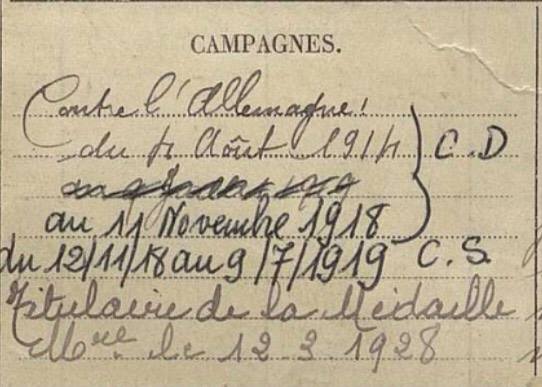 CAMPAGNES.
Contre l'Allemagne!
du 4 Août 1914 } C.D
au 11 Novembre 1918
du 12/11/18 au 9/7/1919 C.S.
Titulaire de la Médaille
Mre le 12.3.1928